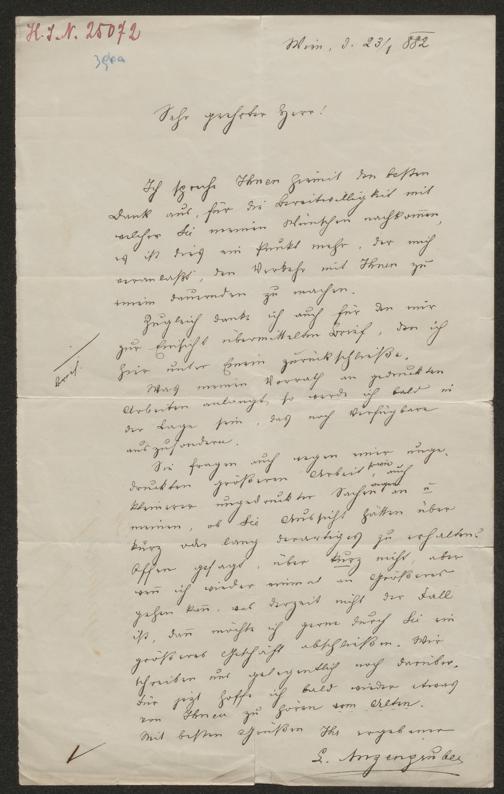 H.I.N. 25072
Wien, d. 23/1 882
Sehr geehrter Herr!
Ich spreche Ihnen hiemit den besten
Dank aus, für die Bereitwilligkeit mit
welcher Sie meinen Wünschen nachkommen,
es ist dies ein Punkt mehr, der mich
veranlaßt, den Verkehr mit Ihnen zu
einem dauernden zu machen.
Zugleich danke ich auch für den mir
zur Einsicht übermittelten Brief, den ich
hier unter Einem zurückschließe.
Was meinen Vorrath an gedruckten
Arbeiten anlangt, so werde ich bald in
der Lage sein, das noch Verfügbare
auszusondern.
Sie fragen auch wegen einer unge-
druckten größeren Arbeit, sowie auch
kleinerer ungedruckter Sachen an u
meinen, ob Sie Aussicht hätten über
kurz oder lang derartiges zu erhalten?
Offen gesagt, über kurz nicht, aber
wenn ich wieder einmal an Größeres
gehen kann, was derzeit nicht der Fall
ist, dann möchte ich gerne durch Sie ein
größeres Geschäft abschließen. Wir
schreiben uns gelegentlich noch darüber.
Für jetzt hoffe ich bald wieder etwas
von Ihnen zu hören vom Alten.
Mit besten Grüßen Ihr ergebener
L. Anzengruber